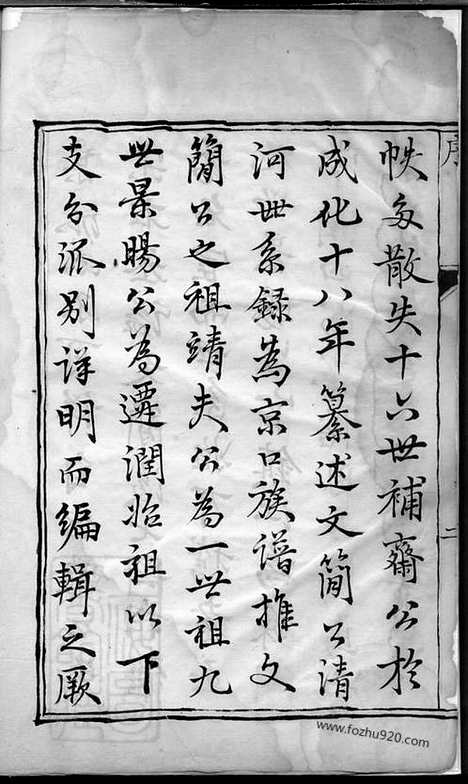 帙多散失十六世補齋公於
成化十八年纂述文簡公清
河世系録為京口族譜推文
簡公之祖靖夫公為一世祖九
世景暘公為遷潤始祖以下
支分派别詳明而編輯之厥
序
二
www.fozhu920.com